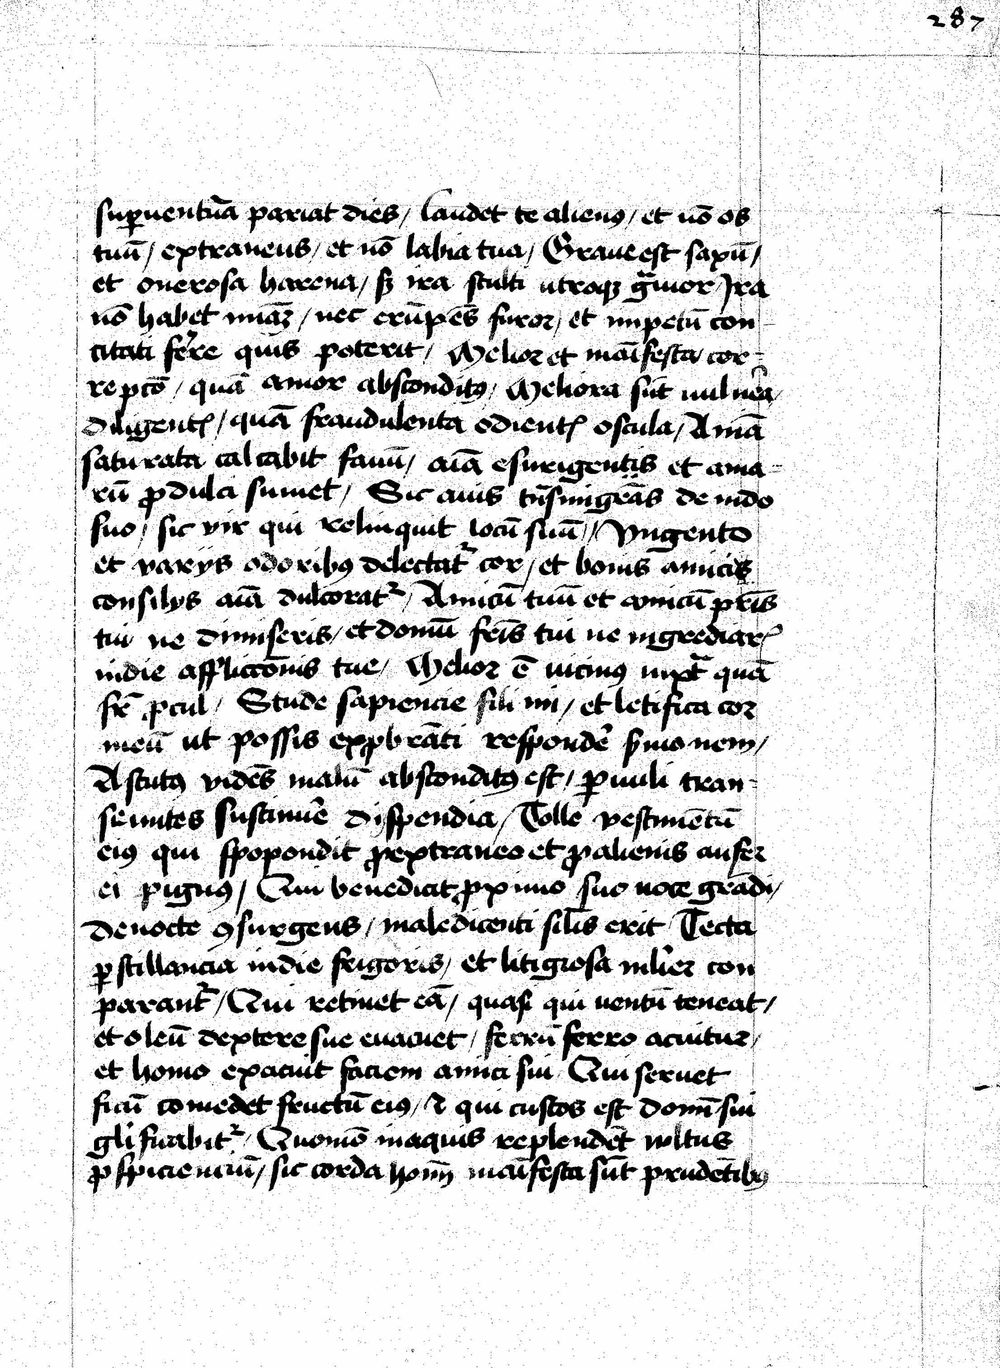 287
supuentu͂a pariat dies / laudet te alienꝰ / et nō os
tuū / extraneus / et nō labia tua / Graue est saxū /
et onerosa harena / sꝫ ira stulti utroqꝫ gᷓuior Ira
nō habet miāꝫ / nec erūpēs furor / et impetū con-
citati fer̄e quis poterit / Melior et māifesta cor-
repcō / quā amor absconditꝰ / Meliora sūt uulnēa
diligentꝭ / quā fraudulenta odientꝭ oscula / Aniā
saturata calcabit fauū / aiā esurigentis et ama-
rū ꝓ dulci sumet / Sic auis tᷓnsmigrās de nido
suo / sic vir qui relinquit locū suū // Vngento
et varijs odoribꝰ delectatᷣ cor / et bonis amicis
consilijs aiā dulcoratᷣ / Amicū tuū et amicū pr̄is
tui ne dimiseris / et domū fr̄is tui ne ingrediarꝭ
indie afflictōnis tue / Melior ē uicinꝰ iuxtᷓ quā
fr̄ ꝓcul / Stude sapiencie fili mi / et letifica cor
meū ut possis exꝓbrāti respondē ẜmonem /
Astutꝰ vidēs malū absconditꝰ est / ꝑuuli tran-
seuntes sustinuēr dispendia / Tolle vestimētū
eiꝰ qui spopondit ꝓextraneo et ꝓalienis aufer
ei pignꝰ / Qui benedicit ꝓximo suo uoce grādi /
denocte ꝯsurgens / maledicenti sil̄is erit Tecta
ꝑstillancia indie frigoris / et litigiosa mlīer con
parantᷣ / Qui retinet eā / quasi qui uentū teneat /
et oleū dextere sue euacuet / ferrū ferro acuitur /
et homo exacuit faciem amici sui Qui seruet
ficū comedet fructū eiꝰ / ⁊ qui custos est domī sui
gl̄ificabitᷣ / Quomō inaquis replendēt wltus
ꝓspicienciū / sic corda hoīm māifesta sūt prudētibꝰ